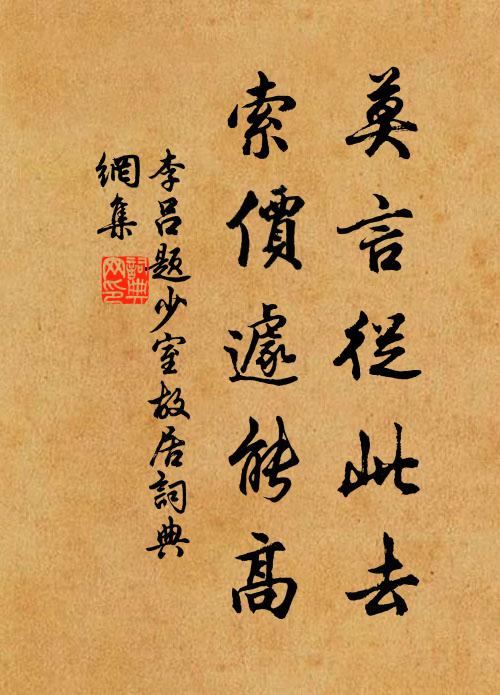 莫言從此去
索價遽能高
李呂題少室故居詞典
網集
詞典网印